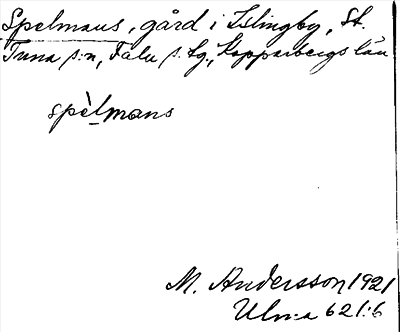 Spelmans, gård i Islingby, St.
Tuna s:n, Falu s. tg., Kopparbergs län
spèlmans
M. Andersson 1921
Ulma 621:6